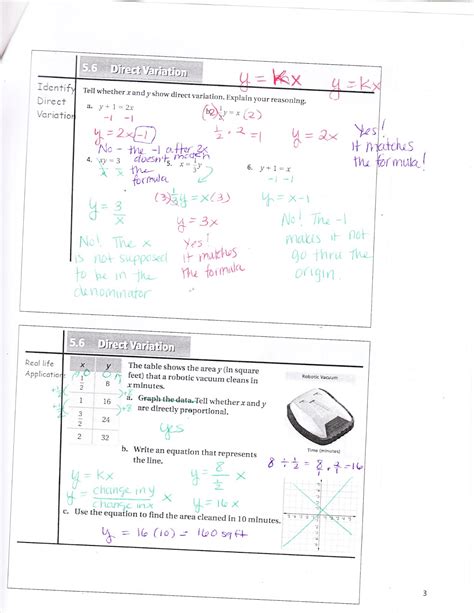 5.6 Direct Variation
y = Kx y = Kx
Identify
Direct
Variation
Tell whether x and y show direct variation. Explain your reasoning.
a. y + 1 = 2x
-1 -1
y = 2x -1
No - the -1 after 2x
doesn't match
the
formula
(2) 1/2 y = x (2)
1/2 · 2 = 1
y = 2x
Yes!
it matches
the formula!
4. xy = 3
x x
y = 3/x
No! The x
is not supposed
to be in the
denominator
5. x = 1/3 y
(3) 1/3 y = x (3)
y = 3x
Yes!
it matches
the formula
6. y + 1 = x
-1 -1
y = x - 1
No! The -1
makes it not
go thru the
origin.
5.6 Direct Variation
Real life
Application
x y
1/2 8
1 16
3/2 24
2 32
+8
The table shows the area y (in square
feet) that a robotic vacuum cleans in
x minutes.
a. Graph the data. Tell whether x and y
are directly proportional.
yes
Robotic Vacuum
Time (minutes)
b. Write an equation that represents
the line.
8 ÷ 1/2 = 8/1 · 2/1 = 16
y = Kx
y = change in y / change in x x
y = 8 / 1/2 x
y = 16x
c. Use the equation to find the area cleaned in 10 minutes.
y = 16 (10) = 160 sq ft
3